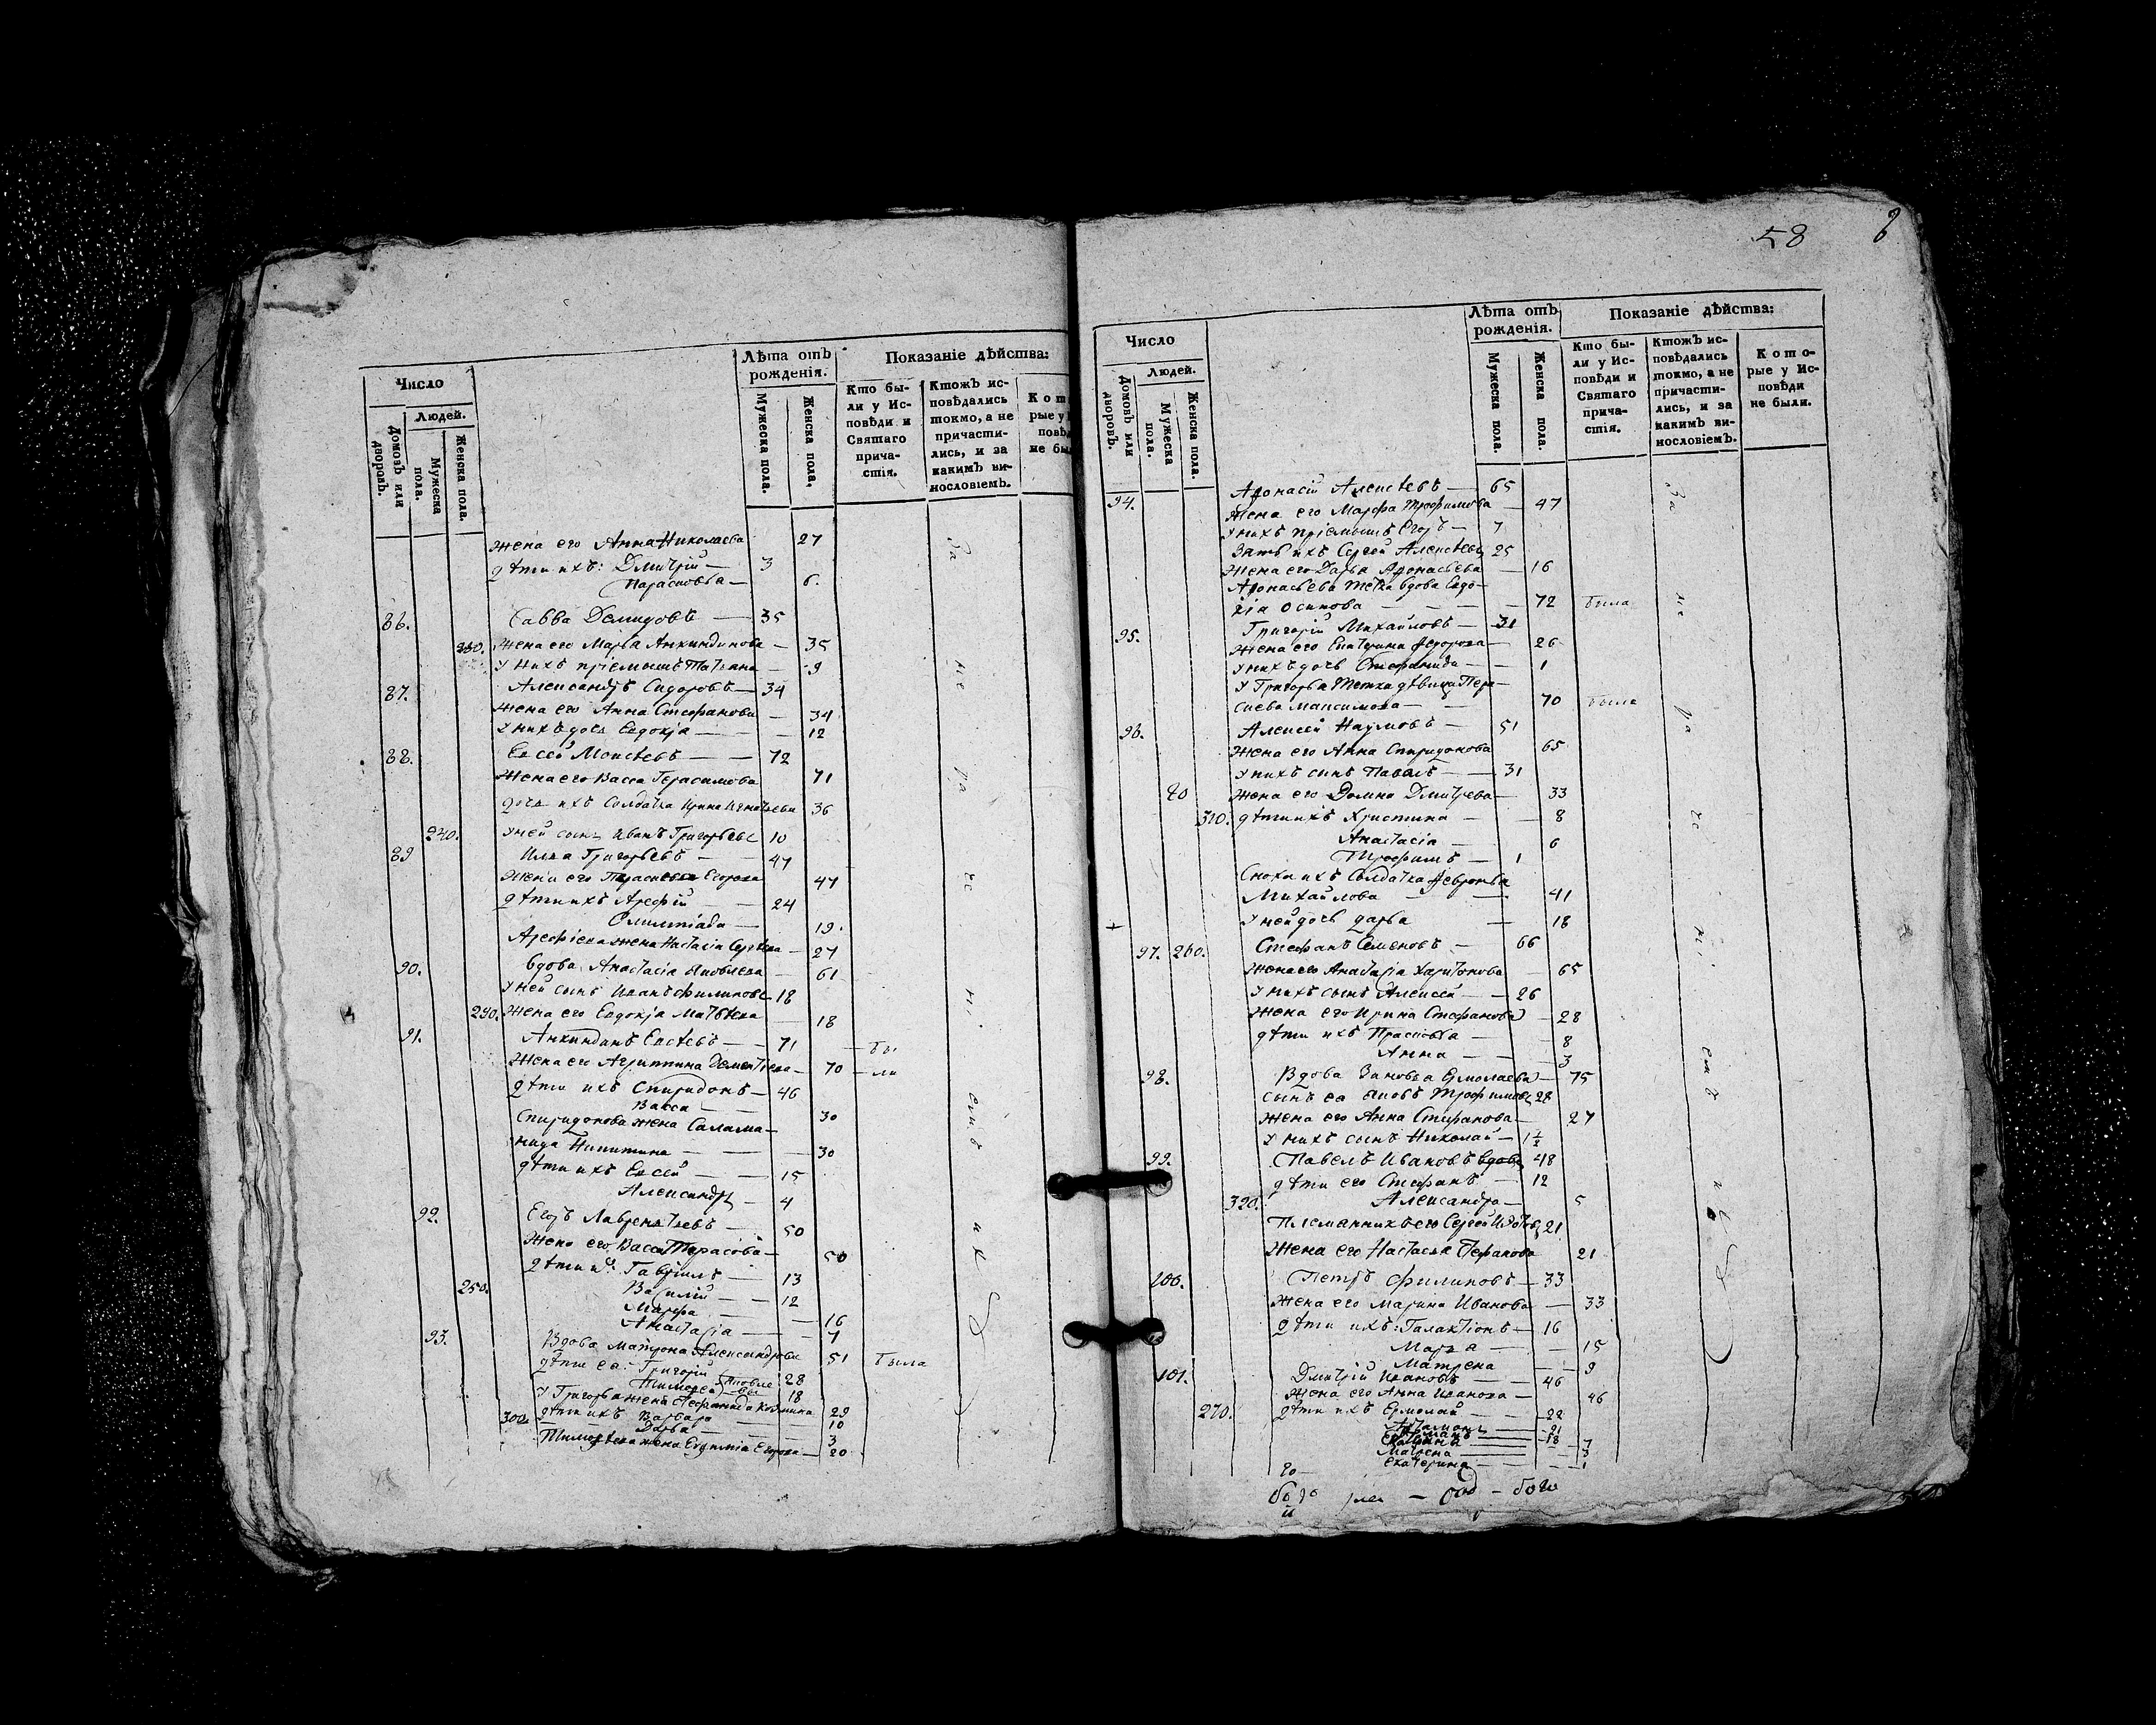 58
Число
Людей.
Домовъ или дворовъ.
Мужеска пола.
Женска пола.
Лѣта отъ рожденія.
Мужеска пола.
Женска пола.
Показаніе дѣйства:
Кто бы-
ли у Ис-
повѣди и
Святаго
прича-
стія.
Ктожъ ис-
повѣдались
токмо, а не
причасти-
лись, и за
какимъ ви-
нословіемъ.
жена его Анна Николаева 27
дѣти ихъ: Дмитрій — 3
Парасковья — 6.
86. Савва Демидовъ — 35
280. жена его Марья Анкиндинова — 35
у нихъ пріемышъ Татьяна — 9
87. Александръ Сидоровъ — 34
жена его Анна Стефанова — 34
у нихъ дочь Евдокія — 12
88. Евсей Моисѣевъ — 72
жена его Васса Герасимова 71
дочь ихъ Солдатка Ирина 36
240. у ней сынъ Иванъ Григорьевъ 10
89 Илья Григорьевъ — 47
жена его Парасковья Егорова 47
дѣти ихъ Арефій — 24
Олимпіада — 19.
Арефіева жена Настасія Сергѣева — 27
90. вдова Анастасія Яковлева — 61
у ней сынъ Иванъ Филиповъ 18
290. жена его Евдокія Матвѣева 18
91. Анкиндинъ Евсѣевъ — 71 бы
жена его Агрипина Дементіева — 70 — ли
дѣти ихъ Спиридонъ — 46
Васса — 30
Спиридонова жена Салама-
нида Никитина — 30
дѣти ихъ Евсей — 15
Александръ — 4
92. Егоръ Лаврентьевъ — 50
жена его Васса Тарасова — 50
дѣти ихъ: Гаврилъ — 13
250. Василій — 12
Марфа — 16
Анастасія — 7
93. Вдова Матрона Александрова 51 была
дѣти ея: Григорій 28
Тимофей 18
у Григорья жена Стефанида Козмина 29
300. дѣти ихъ Варвара 10
Дарья — 3
Тимофеева жена Евдокія Егорова — 20
За не ра че ні емъ ихъ
Число
Людей.
Домовъ или дворовъ.
Мужеска пола.
Женска пола.
Лѣта отъ рожденія.
Мужеска пола.
Женска пола.
Показаніе дѣйства:
Кто бы-
ли у Ис-
повѣди и
Святаго
прича-
стія.
Ктожъ ис-
повѣдались
токмо, а не
причасти-
лись, и за
какимъ ви-
нословіемъ.
Кото-
рые у Ис-
повѣди
не были.
94. Афонасій Алексѣевъ — 65
жена его Марфа Трофимова — 47
у нихъ пріемышъ Егоръ — 7
Зять ихъ Сергей Алексѣевъ 25
жена его Дарья Афонасьева — 16
Афонасьева тетка вдова Евдо-
кія Осипова — 72 была
95. Григорій Михайловъ — 31
жена его Екатерина Федорова — 26
у нихъ дочь Стефанида — 1
у Григорья тетка дѣвица Пера-
Максимова — 70 была
96. Алексей Наумовъ — 51
жена его Анна Спиридонова 65
у нихъ сынъ Павелъ — 31
жена его Домна Дмитрева — 33
310. дѣти ихъ Христина — 8
Анастасія — 6
Трофимъ — 1
Сноха ихъ Солдатка Февронья
Михайлова — 41
у ней дочь Дарья — 18
97. 260. Стефанъ Семеновъ — 66
жена его Анастасія Харитонова 65
у нихъ сынъ Алексей — 26
жена его Ирина Стефанова — 28
дѣти ихъ Прасковья — 8
Анна — 3
98. Вдова Зиновья Ермолаева — 75
сынъ ея Яковъ Трофимовъ 28
жена его Анна Стефанова — 27
у нихъ сынъ Николай — 1½
99. Павелъ Ивановъ вдовъ 48
дѣти его Стефанъ — 12
320. Александра — 5
Племянникъ его Сергей 21
жена его Настасья Стефанова 21
100. Петръ Филиповъ — 33
жена его Марина Иванова — 33
дѣти ихъ: Галактіонъ — 16
Марѳа — 15
Матрена — 9
101. Дмитрій Ивановъ — 46
жена его Анна Иванова — 46
270. дѣти ихъ Ермолай — 22
Артамонъ — 21
18
7
Матрена 3
Екатерина 1
За не ра че ні емъ ихъ